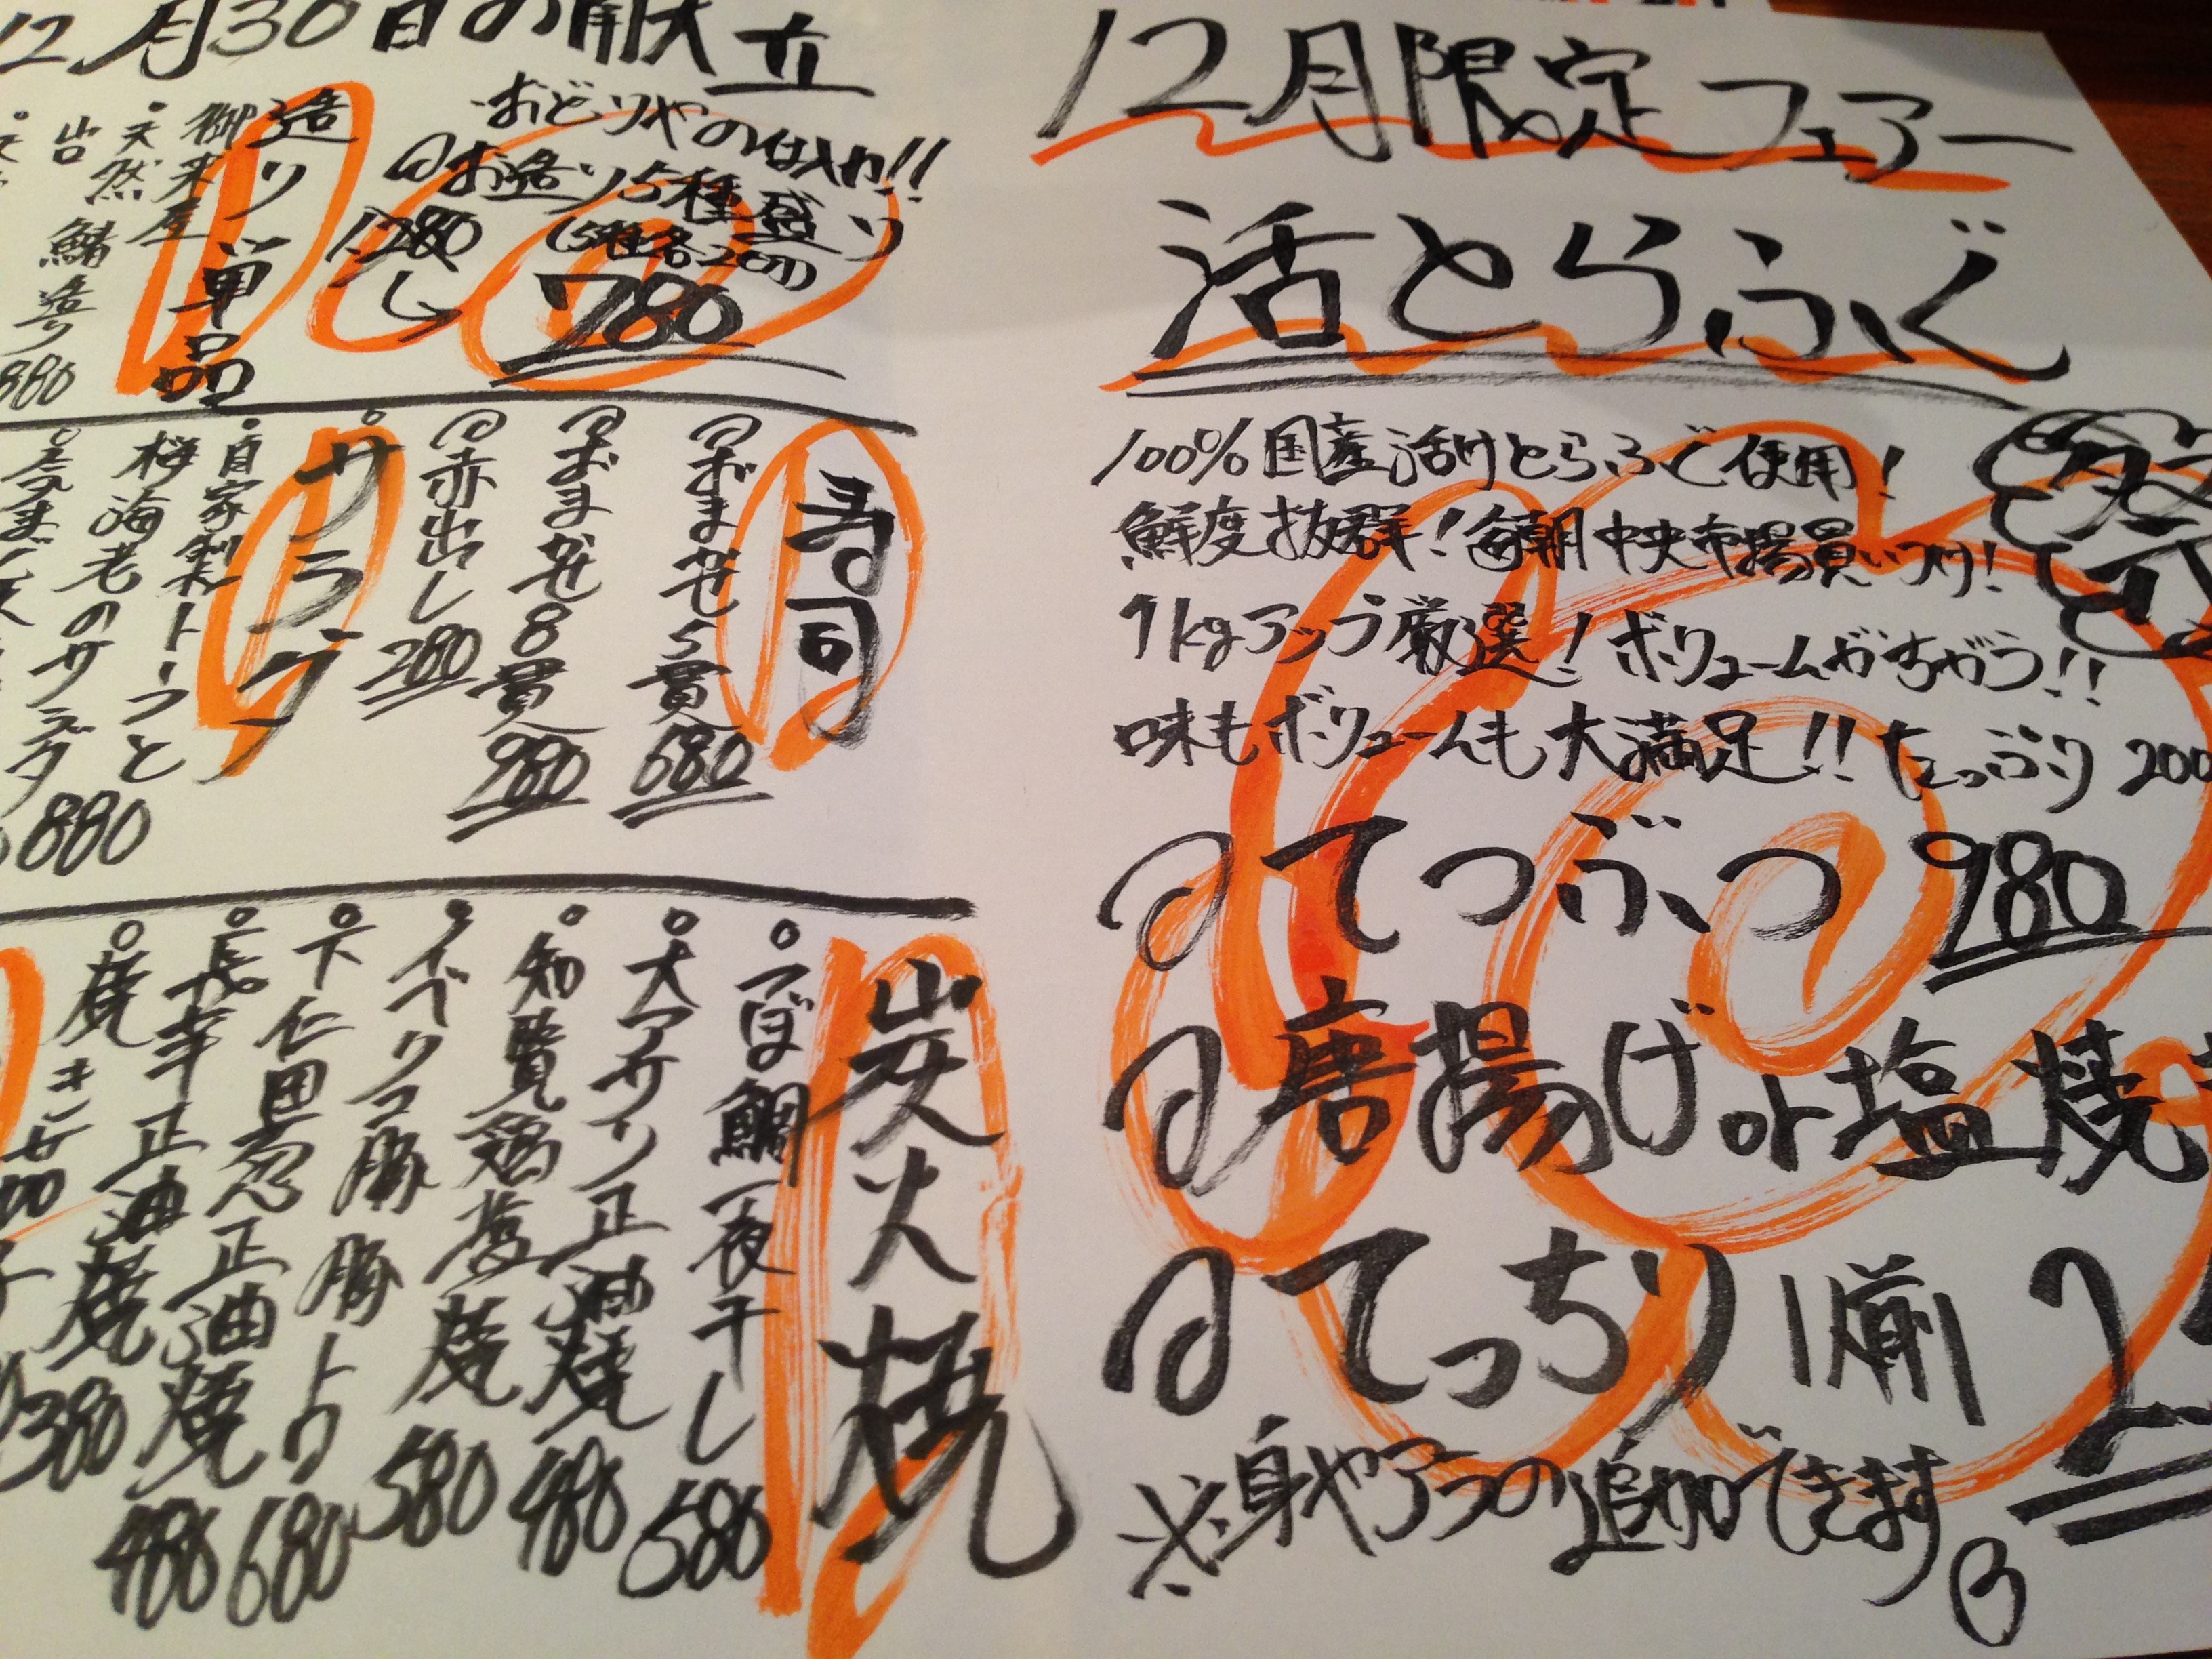 12月30日の献立
おどりやの仕入れ!!
お造り5種盛り
(5種各2切)
1,280
780
造り単品
御来屋
天然
鯖造り
880
寿司
おまかせ5貫 680
おまかせ8貫 980
赤出し 280
サラダ
自家製トーフと
桜海老のサラダ
880
炭火焼
つぼ鯛一夜干し 580
大アサリ正油焼 480
知覧鶏塩焼 580
イベリコ豚豚トロ 680
下仁田葱正油焼 480
長芋正油焼 380
12月限定フェアー
活とらふぐ
100%国産活けとらふぐ使用!
鮮度抜群!毎朝中央市場買いつけ!
1kgアップ厳選!ボリュームがちがう!!
味もボリュームも大満足!!たっぷり200
てつぶつ 980
唐揚げor塩焼
てっちり 1人前 2
※身やアラの追加できます